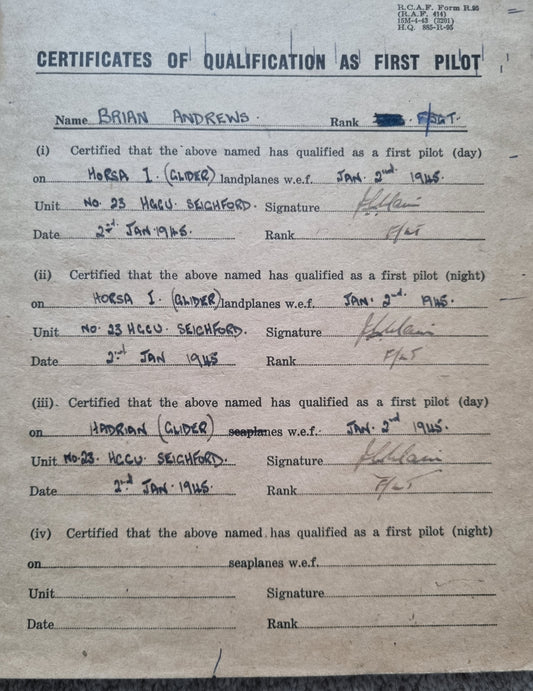 R.C.A.F. Form R.95
(R.A.F. 414)
15M-4-43 (3201)
H.Q. 885-R-95
CERTIFICATES OF QUALIFICATION AS FIRST PILOT
Name BRIAN ANDREWS. Rank F/SGT.
(i) Certified that the above named has qualified as a first pilot (day)
on HORSA I. (GLIDER) landplanes w.e.f. JAN. 2nd 1945.
Unit NO. 23 HGCU. SEIGHFORD. Signature
Date 2nd JAN. 1945. Rank F/LT
(ii) Certified that the above named has qualified as a first pilot (night)
on HORSA I. (GLIDER) landplanes w.e.f. JAN. 2nd. 1945.
Unit NO. 23 HGCU. SEIGHFORD. Signature
Date 2nd JAN 1945 Rank F/LT
(iii). Certified that the above named has qualified as a first pilot (day)
on HADRIAN (GLIDER) seaplanes w.e.f. JAN. 2nd 1945.
Unit NO. 23. HGCU. SEIGHFORD. Signature
Date 2nd. JAN. 1945. Rank F/LT
(iv) Certified that the above named has qualified as a first pilot (night)
on seaplanes w.e.f.
Unit Signature
Date Rank